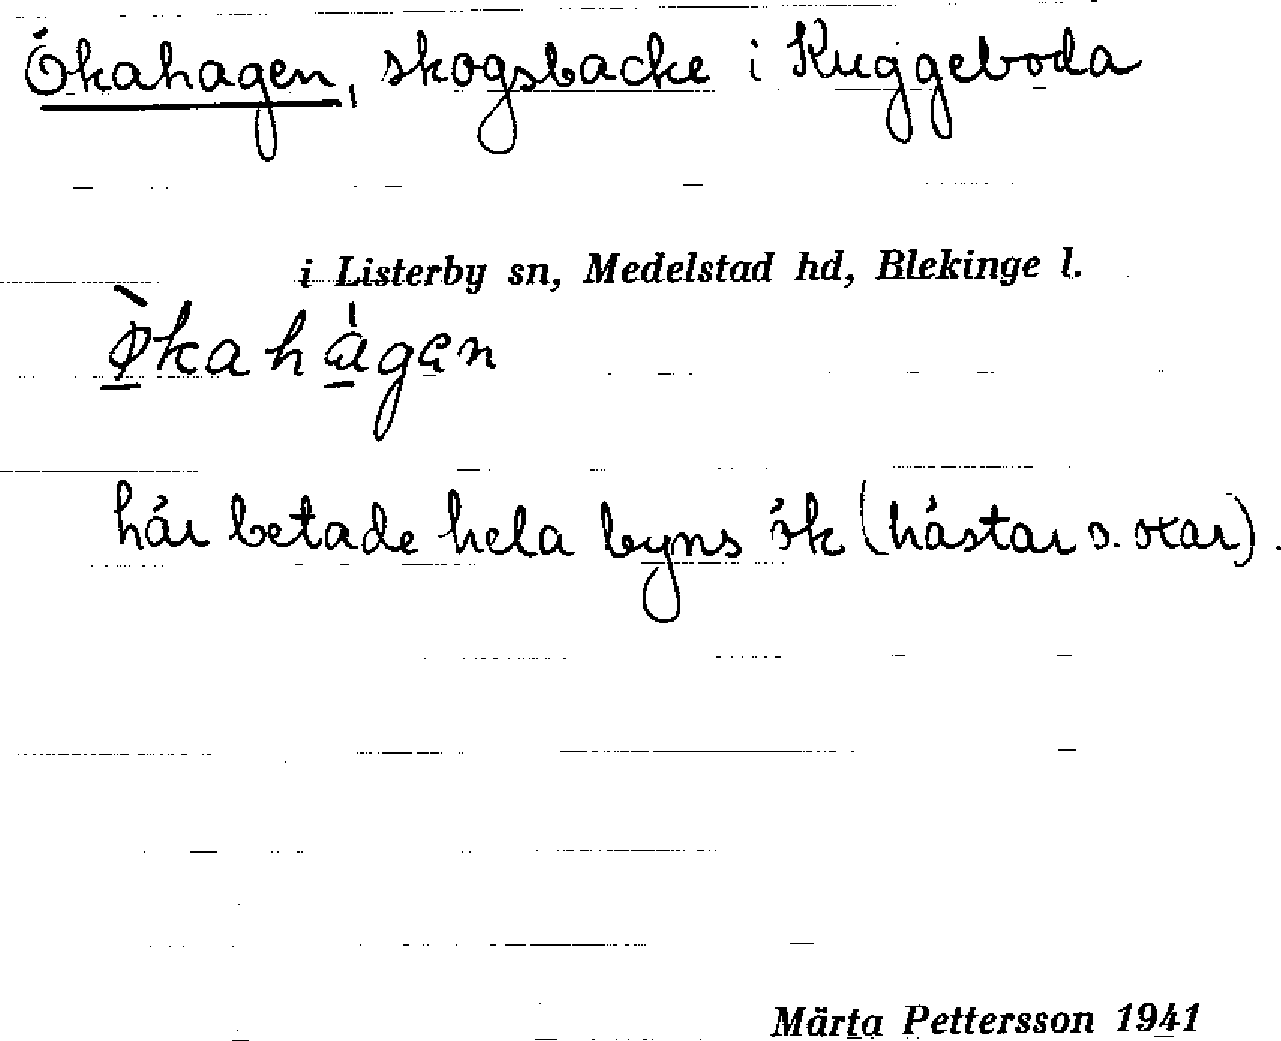 Ökahagen, skogsbacke i Kuggeboda
i Listerby sn, Medelstad hd, Blekinge l.
här betade hela byns ök (hästar o. oxar).
Märta Pettersson 1941